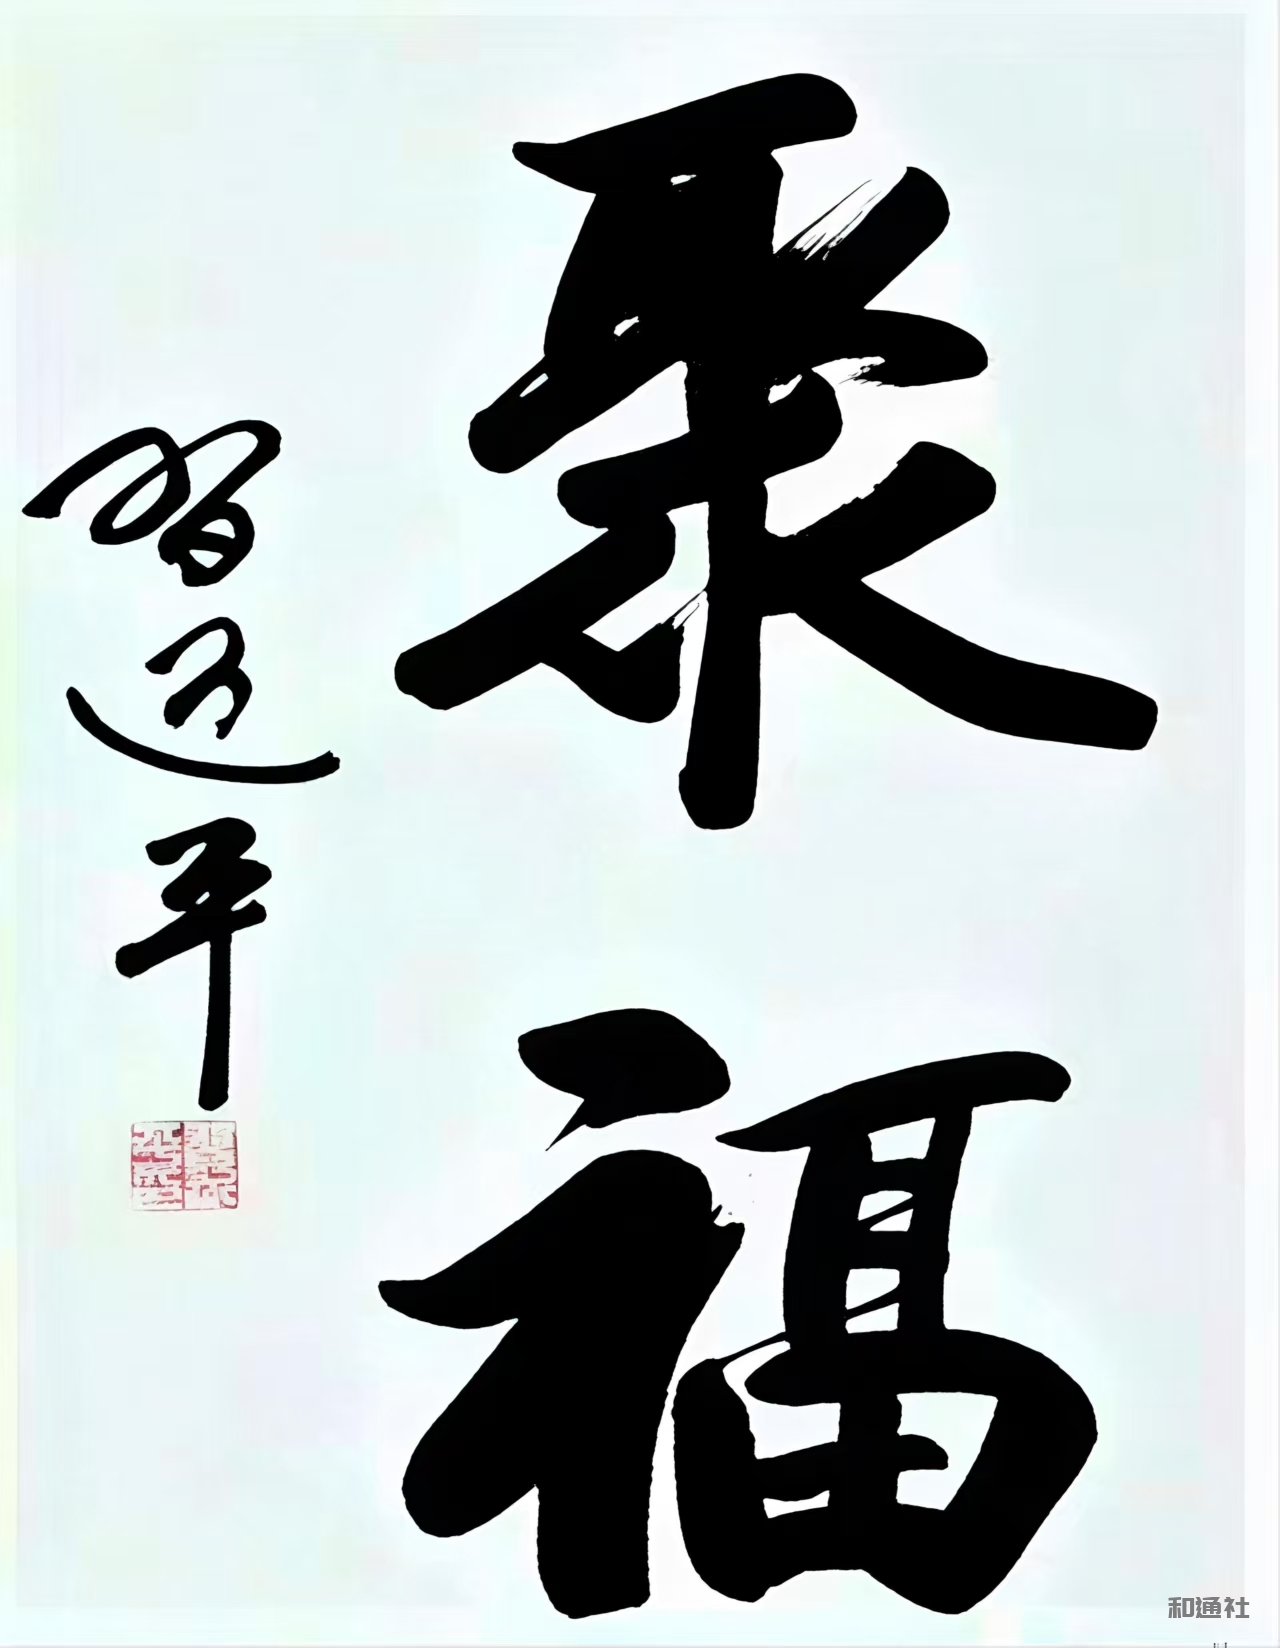 聚福
習近平
和通社